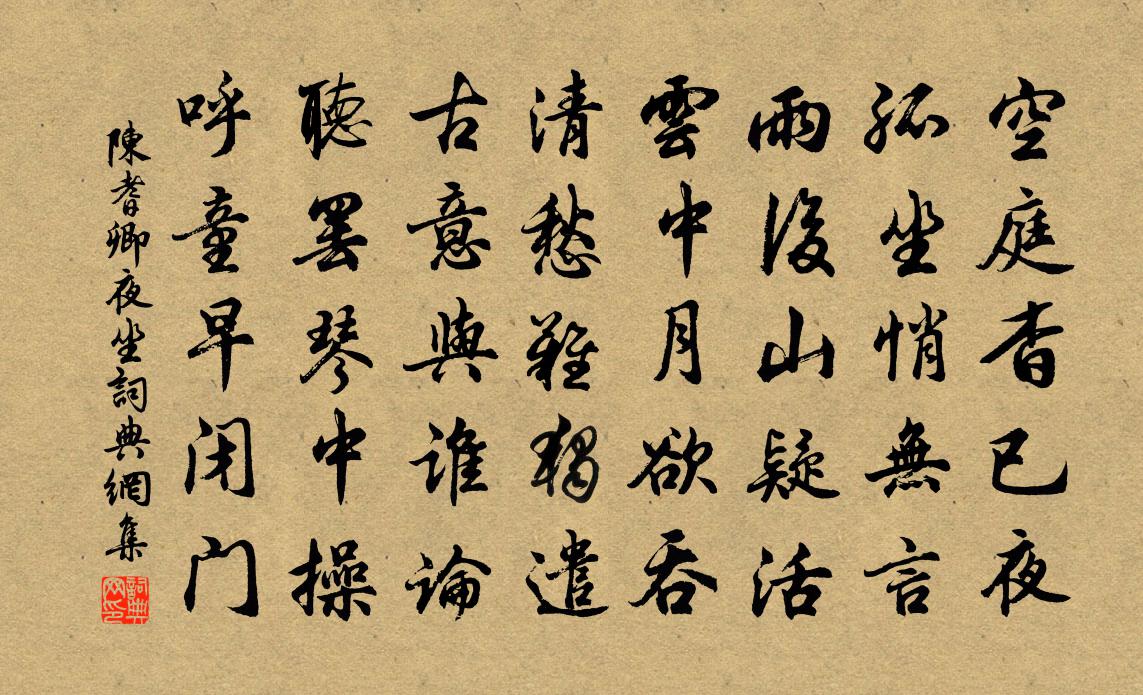 空庭杳已夜
孤坐悄無言
雨後山疑活
雲中月欲吞
清愁難獨遣
古意與誰論
聽罷琴中操
呼童早闭门
陳耆卿夜坐詞典網集
詞典网印